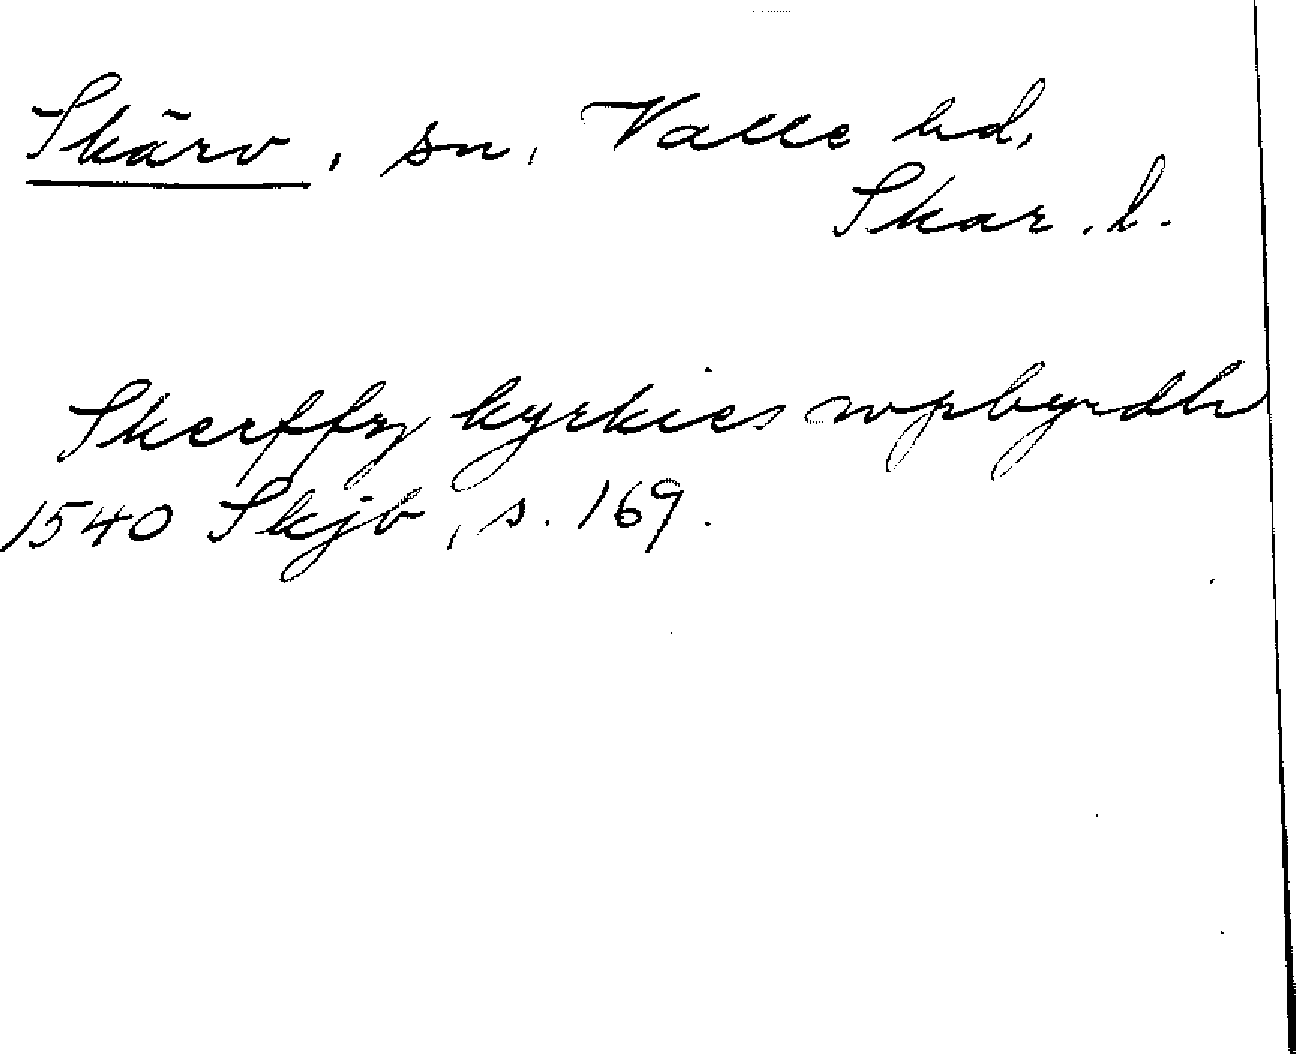 Skärv, sn, Valle hd,
Skar. l.
Skerffz kyrkies wpbyrdh
1540 Skjb, s. 169.